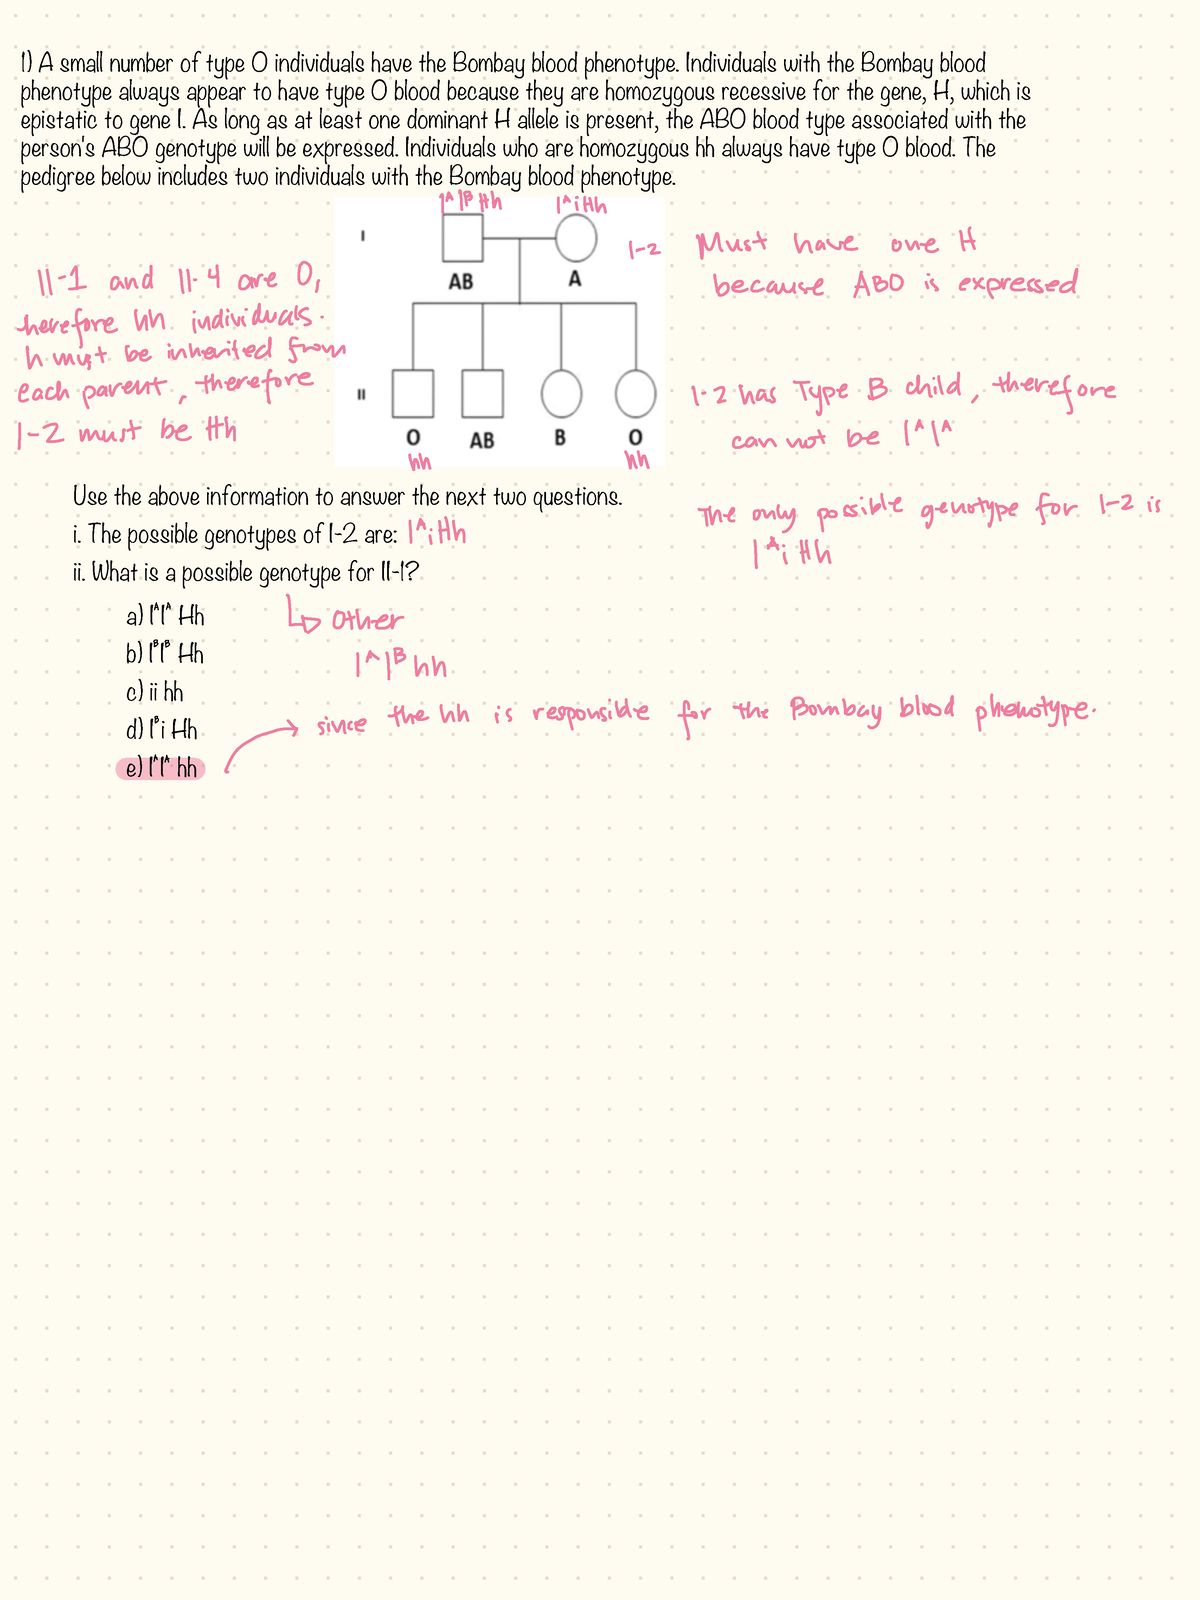 1) A small number of type O individuals have the Bombay blood phenotype. Individuals with the Bombay blood
phenotype always appear to have type O blood because they are homozygous recessive for the gene, H, which is
epistatic to gene I. As long as at least one dominant H allele is present, the ABO blood type associated with the
person's ABO genotype will be expressed. Individuals who are homozygous hh always have type O blood. The
pedigree below includes two individuals with the Bombay blood phenotype.
IᴬIᴮ Hh
Iᴬi Hh
I
AB
A
I-2
Must have one H
because ABO is expressed
II-1 and II-4 are O,
therefore hh individuals.
h must be inherited from
each parent, therefore
I-2 must be Hh
II
O
AB
B
O
hh
hh
I-2 has Type B child, therefore
can not be IᴬIᴬ
Use the above information to answer the next two questions.
i. The possible genotypes of I-2 are: Iᴬi Hh
The only possible genotype for I-2 is
Iᴬi Hh
ii. What is a possible genotype for II-1?
a) IᴬIᴬ Hh
Other
b) IᴮIᴮ Hh
IᴬIᴮ hh
c) ii hh
d) Iᴮi Hh
since the hh is responsible for the Bombay blood phenotype.
e) IᴬIᴬ hh